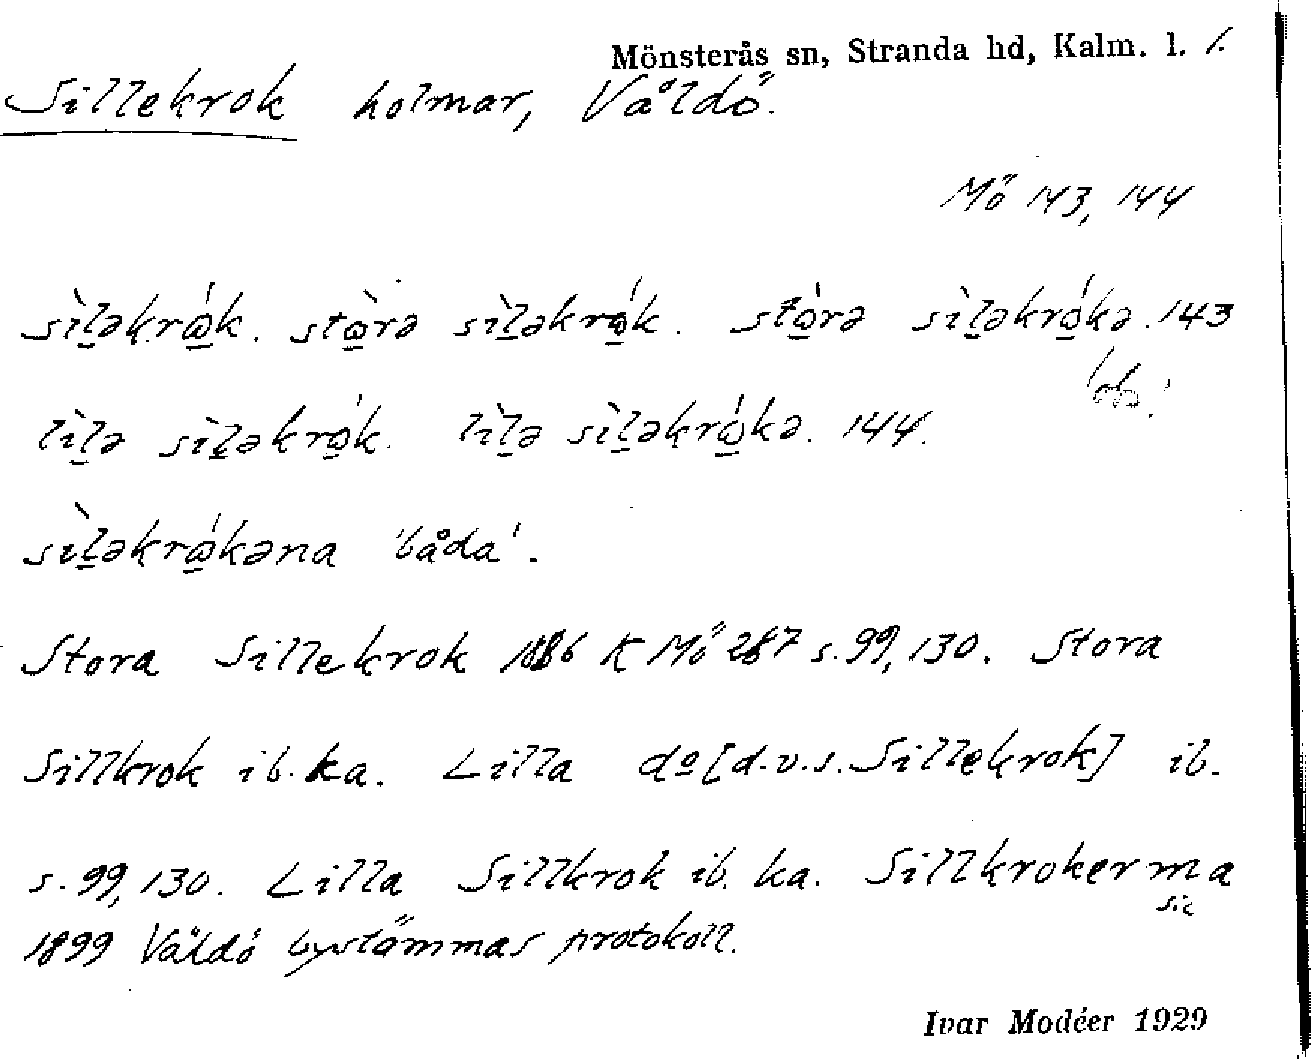 Mönsterås sn, Stranda hd, Kalm. l. 1.
Sillekrok holmar, Våldö.
Mö 143, 144
sìl̠əkrɷ́k. stɷ̀rə sìl̠əkrɷ́k. stɷ̀rə sìl̠əkrɷ́kə. 143
obs!
lìl̠ə sìl̠əkrɷ́k. lìl̠ə sìl̠əkrɷ́kə. 144.
sìl̠əkrɷ́kəna 'båda'.
Stora Sillekrok 1886 K Mö 287 s. 99, 130. Stora
Sillkrok ib. ka. Lilla dº [d.v.s. Sillekrok] ib.
s. 99, 130. Lilla Sillkrok ib. ka. Sillkrokerma
sic
1899 Våldö bystämmas protokoll.
Ivar Modéer 1929